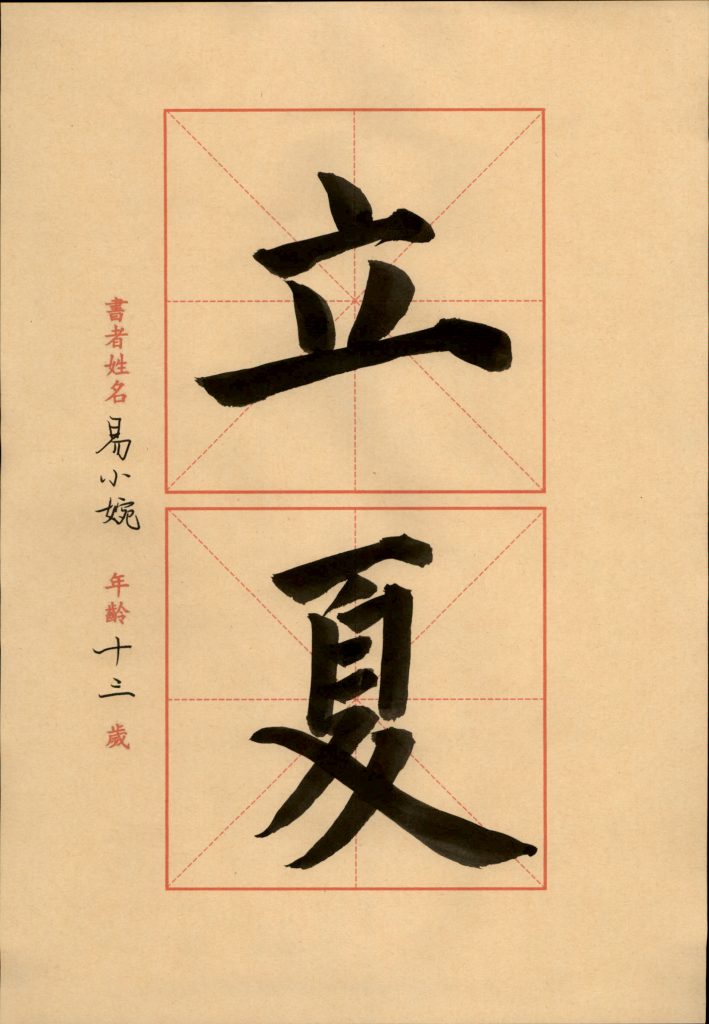 立夏
書者姓名 易小婉 年齡 十三 歲